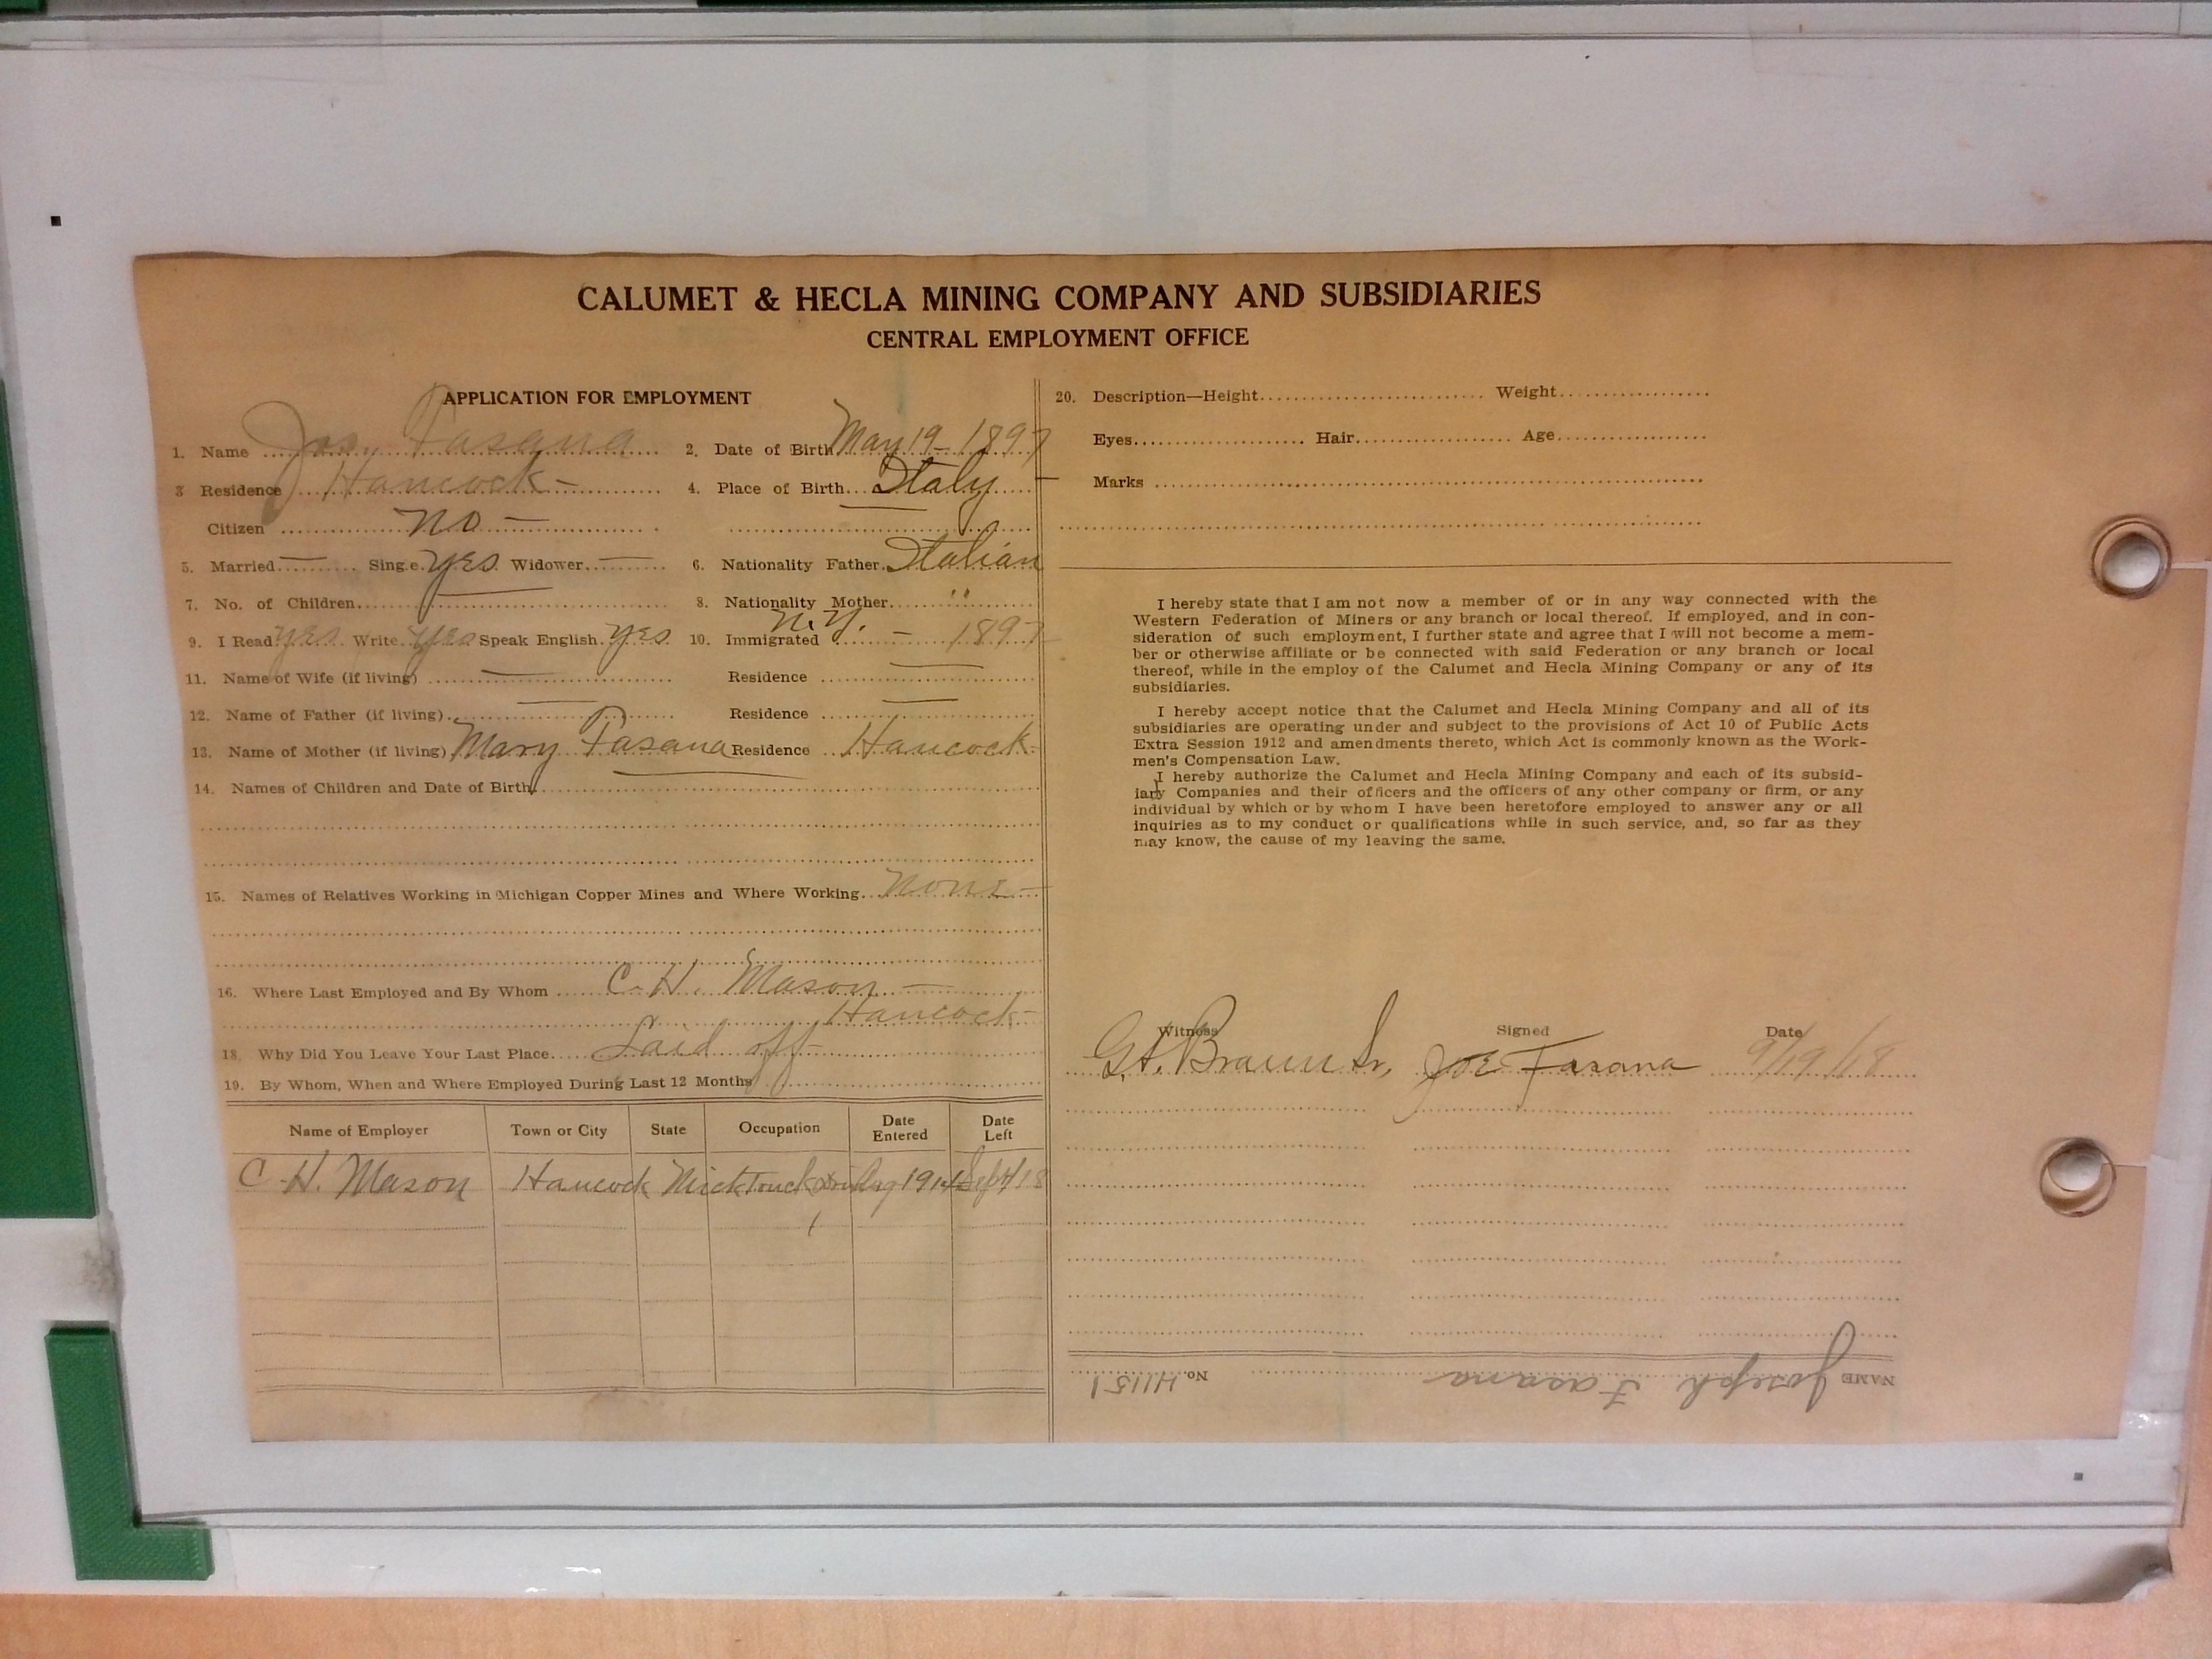 CALUMET & HECLA MINING COMPANY AND SUBSIDIARIES
CENTRAL EMPLOYMENT OFFICE
APPLICATION FOR EMPLOYMENT
1. Name Jos. Fasana 2. Date of Birth May 19 - 1897
3 Residence Hancock - 4. Place of Birth Italy -
Citizen no -
5. Married — Single yes Widower — 6. Nationality Father Italian
7. No. of Children 8. Nationality Mother "
9. I Read yes Write yes Speak English yes 10. Immigrated N.Y. - 1897
11. Name of Wife (if living) — Residence —
12. Name of Father (if living) — Residence —
13. Name of Mother (if living) Mary Fasana Residence Hancock
14. Names of Children and Date of Birth
15. Names of Relatives Working in Michigan Copper Mines and Where Working none -
16. Where Last Employed and By Whom C. H. Mason -
Hancock -
18. Why Did You Leave Your Last Place Laid off -
19. By Whom, When and Where Employed During Last 12 Months
Name of Employer Town or City State Occupation Date Entered Date Left
C. H. Mason Hancock Mich Truck Aug 1914 Sept 18
20. Description—Height Weight
Eyes Hair Age
Marks
I hereby state that I am not now a member of or in any way connected with the
Western Federation of Miners or any branch or local thereof. If employed, and in con-
sideration of such employment, I further state and agree that I will not become a mem-
ber or otherwise affiliate or be connected with said Federation or any branch or local
thereof, while in the employ of the Calumet and Hecla Mining Company or any of its
subsidiaries.
I hereby accept notice that the Calumet and Hecla Mining Company and all of its
subsidiaries are operating under and subject to the provisions of Act 10 of Public Acts
Extra Session 1912 and amendments thereto, which Act is commonly known as the Work-
men's Compensation Law.
I hereby authorize the Calumet and Hecla Mining Company and each of its subsid-
iary Companies and their officers and the officers of any other company or firm, or any
individual by which or by whom I have been heretofore employed to answer any or all
inquiries as to my conduct or qualifications while in such service, and, so far as they
may know, the cause of my leaving the same.
Witness Signed Date
G.A. Braun Sr. Joe Fasana 9/19/18
NAME Joseph Fasana No. H1151